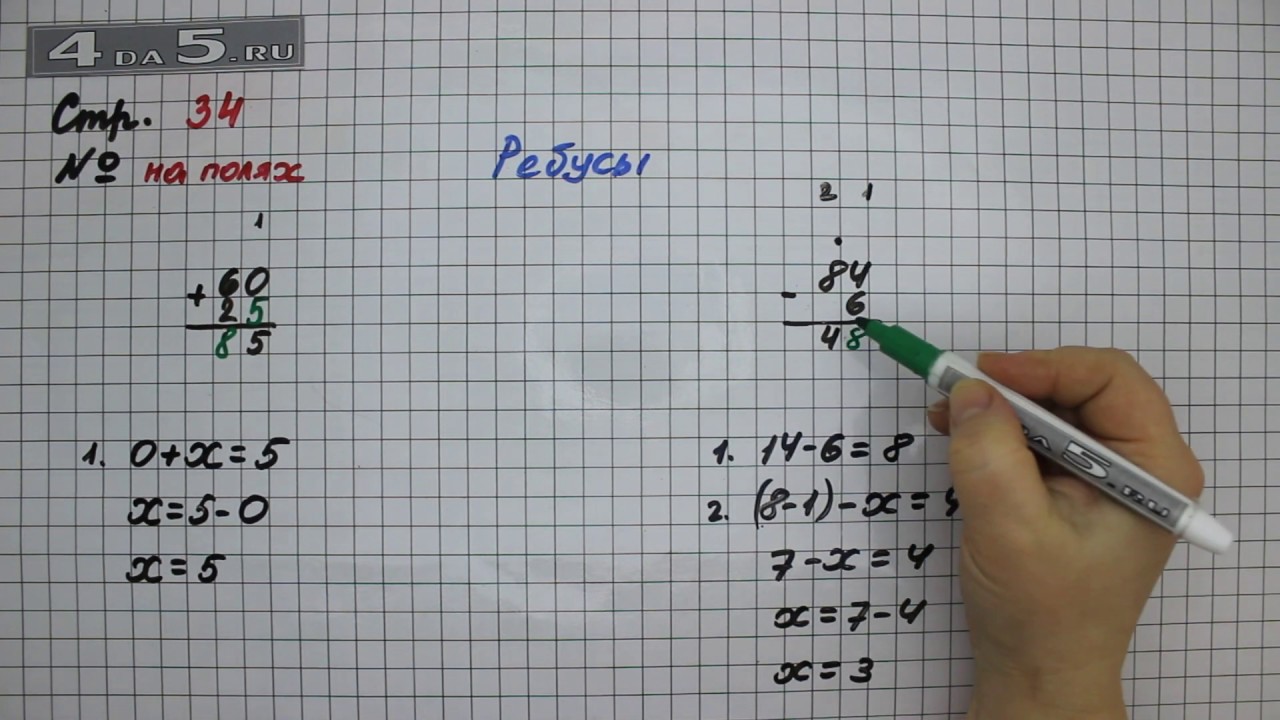 4DA5.RU
Стр. 34
№ на полях
Ребусы
1
+ 60
25
85
1. 0+x=5
x=5-0
x=5
2 1
.
- 84
6
48
1. 14-6=8
2. (8-1)-x=
7-x=4
x=7-4
x=3
DA5.RU